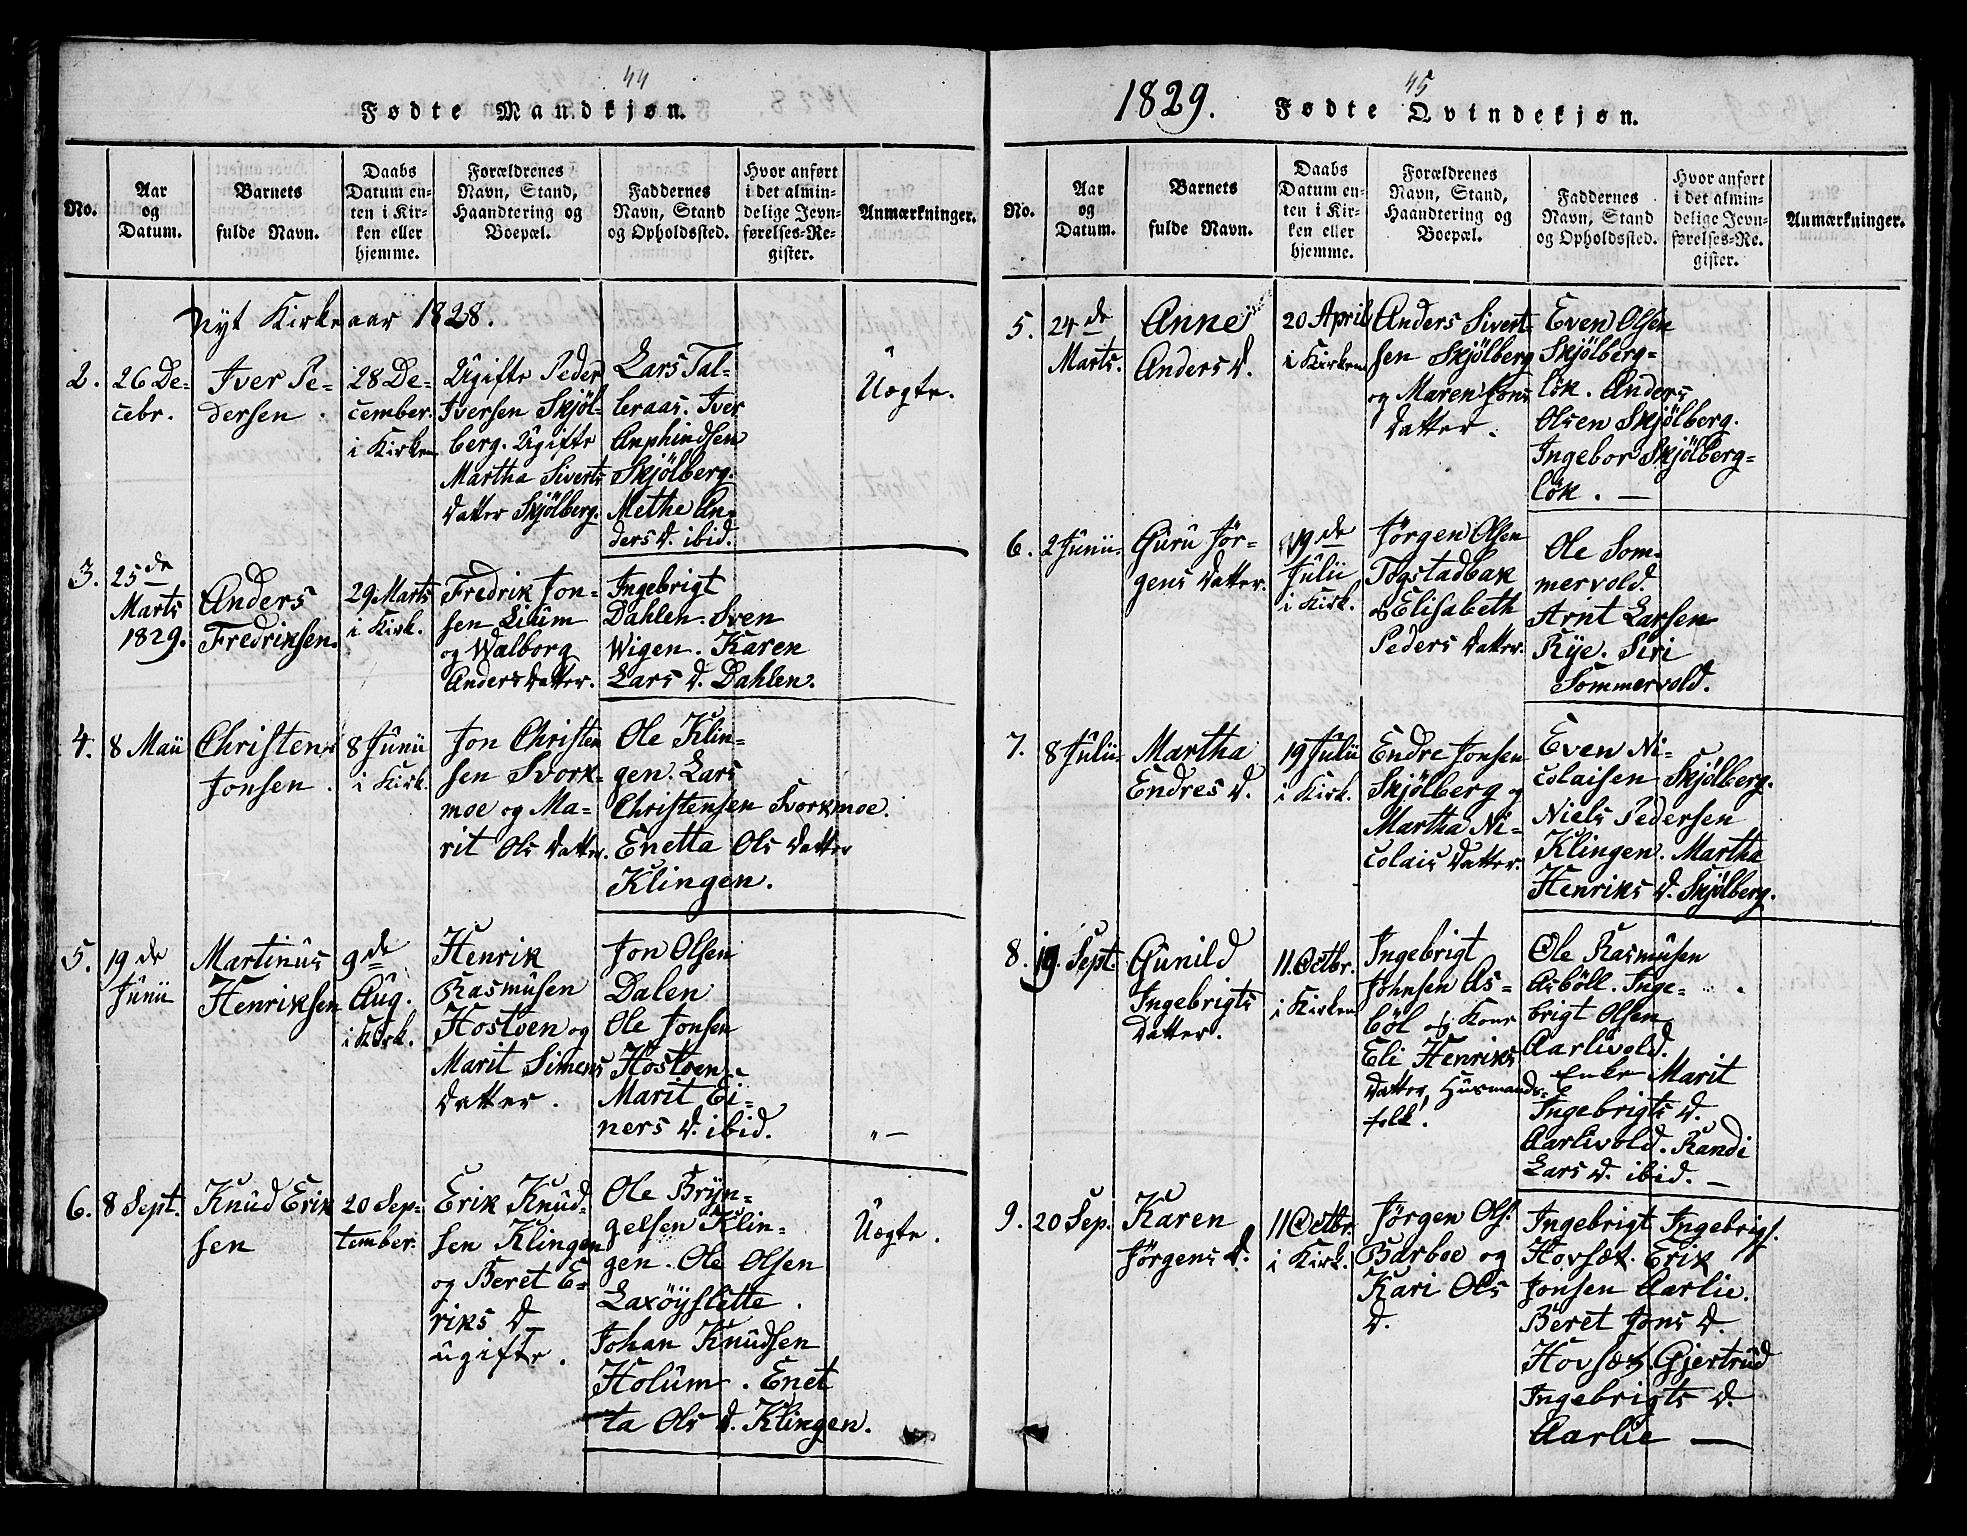 44
Fødte Mandkjøn.
No.
Aar
og
Datum.
Barnets
fulde Navn.
Daabs
Datum en-
ten i Kir-
ken eller
hjemme.
Forældrenes
Navn, Stand,
Haandtering og
Boepæl.
Faddernes
Navn, Stand
og Opholdssted.
Hvor anført
i det almin-
delige Jevn-
førelses-Re-
gister.
Anmærkninger.
Nyt Kirkeaar 1828.
2.
26 De-
cebr.
Iver Pe-
dersen.
28 De-
cember.
i Kirken
Ugifte Peder
Iversen Skjöl-
berg. Ugifte
Martha Siverts
Datter Skjölberg.
Lars Tal-
leraas. Iver
Anphindsen
Skjölberg.
Methe An-
ders D. ibid.
Uægte.
3.
25de
Marts
1829.
Anders
Fredriksen.
29 Marts
i Kirk.
Fredrik Jon-
sen Lium
og Walborg
Anders Datter.
Ingebrigt
Dahlen. Sven
Wigen. Karen
Lars D. Dahlen.
4.
8 Maii
Christen
Jonsen.
8 Junii
i Kirk.
Jon Christen
sen Svork-
moe og Ma-
rit Ols Datter.
Ole Klin-
gen. Lars
Christensen Svorkmoe.
Enetta Ols Datter
Klingen.
5.
19de
Junii
Martinus
Henriksen
9de
Aug.
i Kirk.
Henrik
Rasmusen
Hostoen og
Marit Simens
Datter.
Jon Olsen
Dalen
Ole Jonsen
Hostoen.
Marit Ei-
ners D. ibid.
" —
6.
8 Sept.
Knud Erik
sen
20 Sep-
tember.
Erik Knud-
sen Klingen
og Beret E-
riks D.
ugifte.
Ole Bryn-
gelsen Klin-
gen. Ole Olsen
Laxöyslette.
Johan Knudsen
Holum. Enet
ta Ols D. Klingen.
Uægte.
45
1829. Fødte Qvindekjøn.
No.
Aar
og
Datum.
Barnets
fulde Navn.
Daabs
Datum en-
ten i Kir-
ken eller
hjemme.
Forældrenes
Navn, Stand,
Haandtering og
Boepæl.
Faddernes
Navn, Stand
og Opholdssted.
Hvor anført
i det almin-
delige Jevn-
førelses-Re-
gister.
Anmærkninger.
5.
24de
Marts.
Anne
Anders D.
20 April
i Kirken
Anders Sivert-
sen Skjölberg
og Maren Jons
Datter.
Even Olsen
Skjölberg-
lök. Anders
Olsen Skjölberg.
Ingebor Skjölberg-
lök. —
6.
2 Junii.
Guru Jör-
gens Datter.
19de
Julii
i Kirk.
Jørgen Olsen
Togstadbak
og Elisabeth
Peders Datter.
Ole Som-
mervold.
Arnt Larsen
Rye. Siri
Sommervold.
7.
8 Julii
Martha
Endres D.
19 Julii
i Kirk.
Endre Jonsen
Skjölberg og
Martha Ni-
colais Datter.
Even Ni-
colaisen Skjölberg.
Niels Pedersen
Klingen. Martha
Henriks D. Skjölberg.
8.
19. Sept.
Gunild
Ingebrigts
Datter.
11. Octbr.
i Kirken
Ingebrigt
Johnsen As-
böl og Kone
Eli Henriks
Datter, Husmands-
folk.
Ole Rasmusen
Asböll. Inge-
brigt Olsen
Aarlivold.
Enke Marit
Ingebrigts D.
Aarlivold. Randi
Lars D. ibid. —
9.
20 Sep.
Karen
Jørgens D.
11 Octbr.
i Kirk.
Jørgen Ols.
Barboe og
Kari Ols
D.
Ingebrigt Ingebrigs.
Hovsæt. Erik
Jonsen Aarlie.
Beret Jons D.
Hovsæt. Gjertrud
Ingebrigts D.
Aarlie —